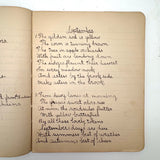 September
The golden rod is yellow
The corn is turning brown
The trees in apple orchards
With fruit are bending down
The sedges flaunt their harvest
In every meadow nook
And asters by the brook side
Make asters in the brook
From dewy lanes at morning
The grapes sweet odors rise
At noon the roads all flutter
With yellow butterflies
By all these lovely tokens
September days are here
With summers best of weather
And autumns best of cheer